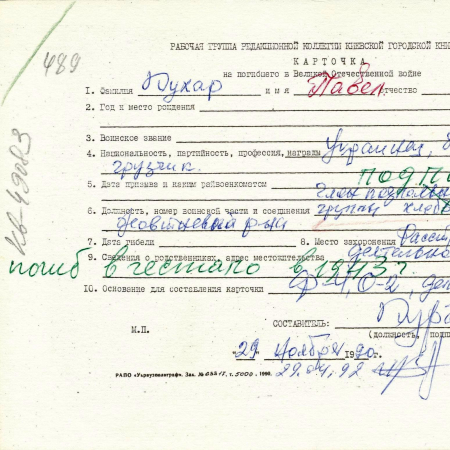 489
КВ-43083
РАБОЧАЯ ГРУППА РЕДАКЦИОННОЙ КОЛЛЕГИИ КИЕВСКОЙ ГОРОДСКОЙ КНИ
КАРТОЧКА
на погибшего в Великой Отечественной войне
1. Фамилия Пухар имя Павел отчество
2. Год и место рождения
3. Воинское звание
4. Национальность, партийность, профессия, награды Украинец,
грузчик.
5. Дата призыва и каким райвоенкоматом подп
член подпольн
6. Должность, номер воинской части и соединения группы
Жовтневый р-на
7. Дата гибели 8. Место захоронения Расст
9. Сведения о родственниках, адрес местожительства
погиб в гестапо в 1943 г
10. Основание для составления карточки
СОСТАВИТЕЛЬ:
(должность, подп
М.П.
"29" ноября 1990г.
29.04.92
РАПО «Укрвузполиграф». Зак. т. 5000. 1990.